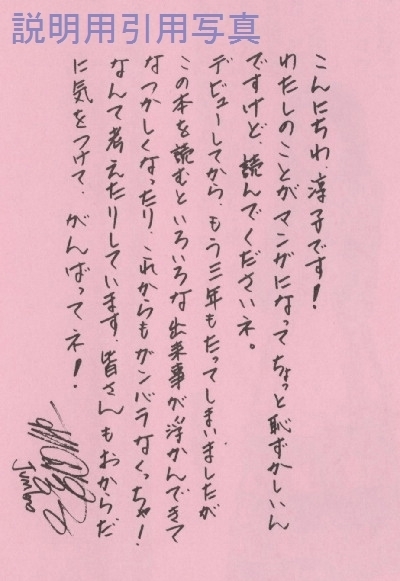 説明用引用写真
こんにちわ、淳子です!
わたしのことがマンガになってちょっと恥ずかしいん
ですけど、読んでくださいネ。
デビューしてから、もう三年もたってしまいましたが
この本を読むといろいろな出来事が浮かんできて
なつかしくなったり、これからもガンバラなくっちゃ!
なんて考えたりしています。皆さんもおからだ
に気をつけて、がんばってネ!
Junko